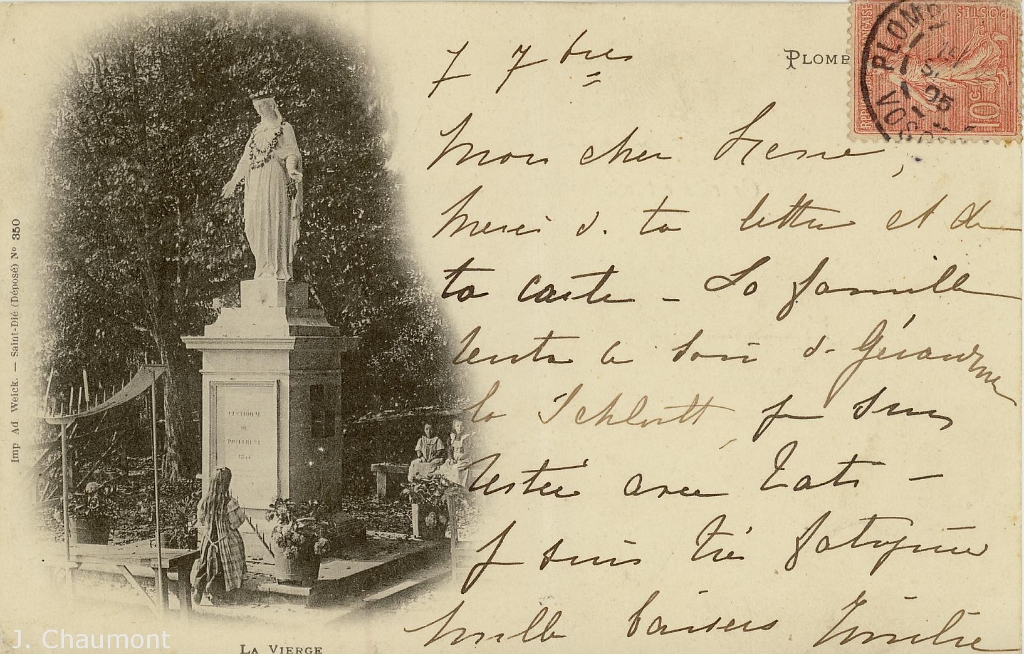 7 7bres
PLOMB
Mon cher
Merci de ta lettre et de
ta carte – La famille
rentre ce soir de Gérardmer
la Schlucht, je suis
restée avec
Je suis très fatiguée
mille baisers Émilie
LA VIERGE
Imp Ad Weick. — Saint-Dié (Déposé) Nº 350
POSTES
10c
PLOMB
VOSGES
J. Chaumont